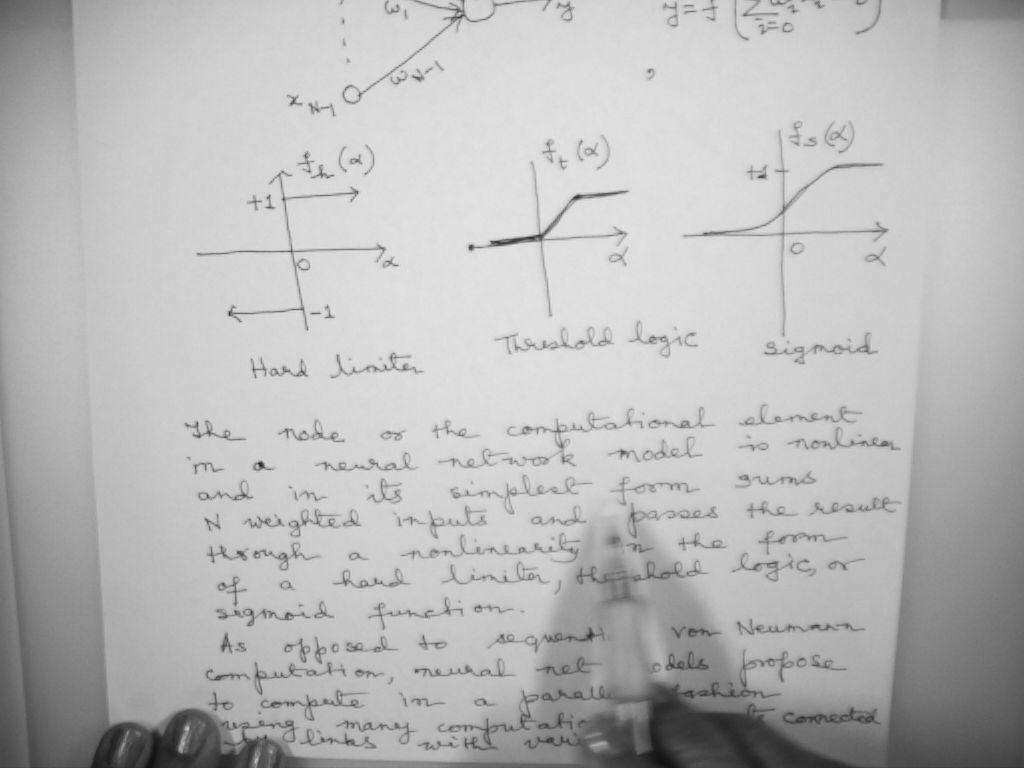 ω₁
y
y = f
i=0
ω_{N-1}
x_{N-1}
f_h (α)
f_t (α)
f_s(α)
+1
+1
0
α
α
0
α
-1
Hard limiter
Threshold logic
sigmoid
The node or the computational element
in a neural network model is nonlinear
and in its simplest form sums
N weighted inputs and passes the result
through a nonlinearity in the form
of a hard limiter, threshold logic, or
sigmoid function.
As opposed to von Neumann
computation, neural net propose
to compute in a fashion
using many connected
links with